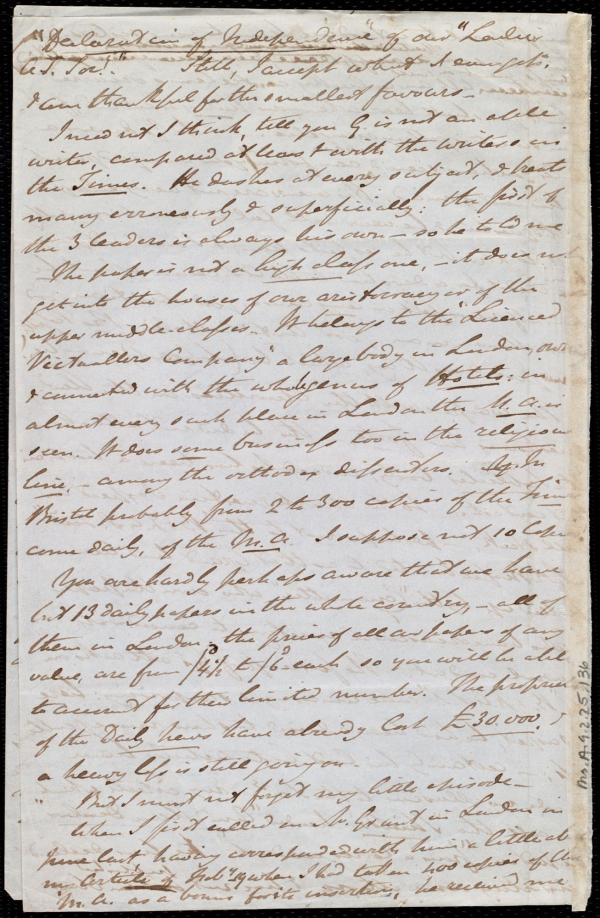 "Declaration of Independence" of our "Ladies
A. S. Soc.^y" Still, I accept what I can get,
& am thankful for the smallest favours_
I need not I think, tell you G is not an able
writer, compared at least with the writers in
the Times. He dashes at every subject, & treats
many erroneously & superficially: the first of
the 3 leaders is always his own _ so he told me
The paper is not a high class one, _ it does not
get into the houses of our aristocracy or of the
upper middle-classes. It belongs to the "Licenced
Victuallers Company" a large body in London, own
& connected with the whole genus of Hotels; in
almost every such place in London the M. A. is
seen. It does some business too in the religious
line, _ among the orthodox dissenters. In
Bristol probably from 2 to 300 copies of the Times
come daily, of the M. A. I suppose not 10 Copies
You are hardly perhaps aware that we have
but 13 daily papers in the whole country, _ all of
them in London _ the price of all our papers of any
value, are from /4½ to /6 each so you will be able
to account for their limited number. The proprie
of the Daily news have already lost £30.000, &
a heavy loss is still going on
But I must not forget my little episode _
When I first called on Mr. Grant in London in
June last having corresponded with him a little ab
my Article of Feb^y when I had taken 400 copies of the
M. A. as a bonus for its insertion, he received me
Ms.A.9.2.25,136